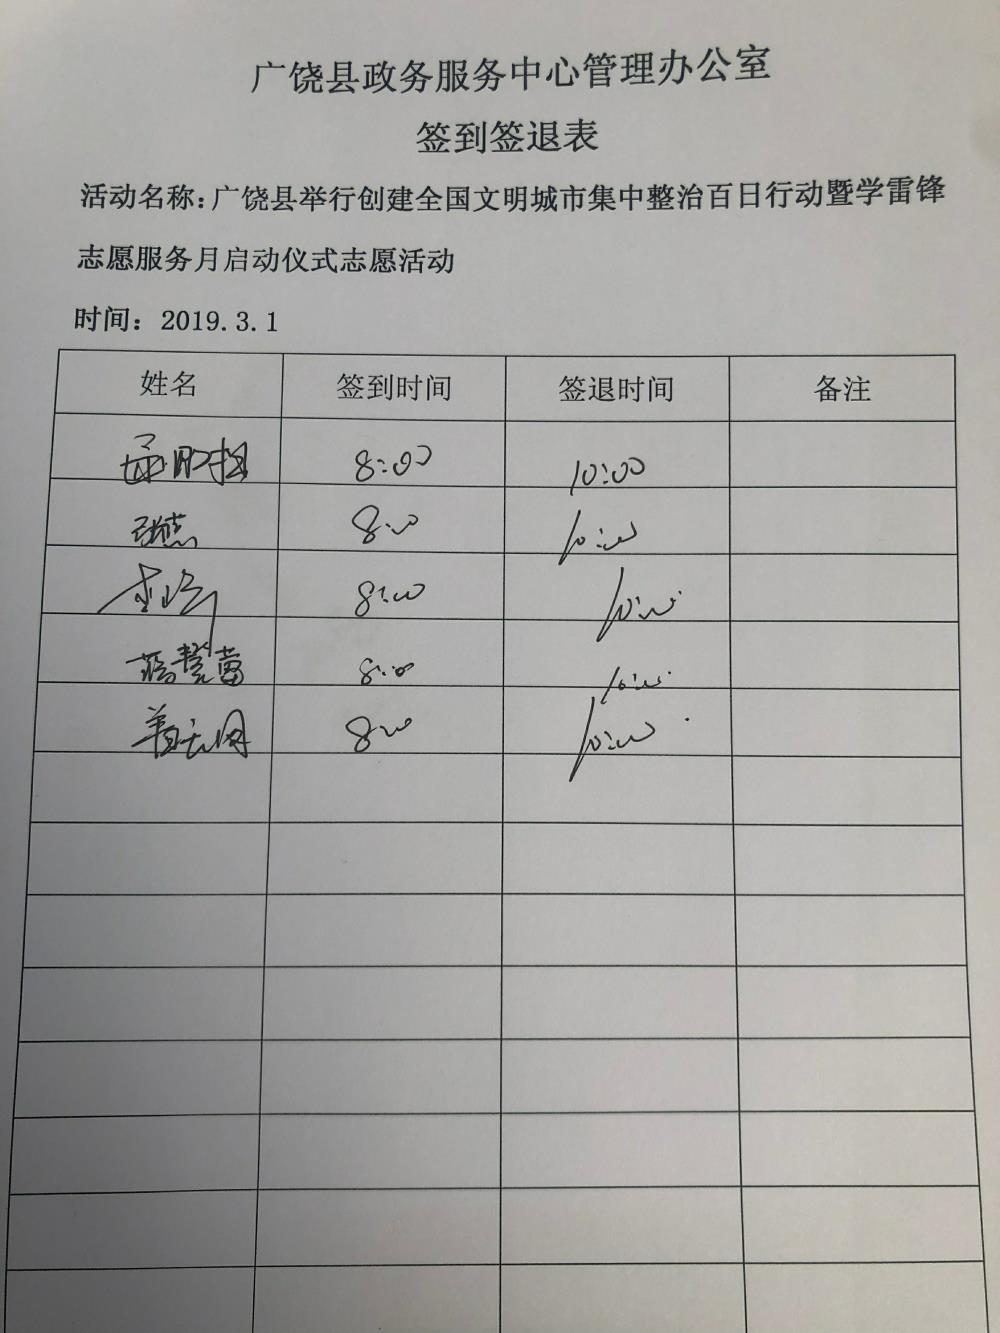 广饶县政务服务中心管理办公室
签到签退表
活动名称：广饶县举行创建全国文明城市集中整治百日行动暨学雷锋
志愿服务月启动仪式志愿活动
时间：2019.3.1
姓名 签到时间 签退时间 备注
8:00 10:00
8:00 10:00
8:00 10:00
8:00 10:00
8:00 10:00